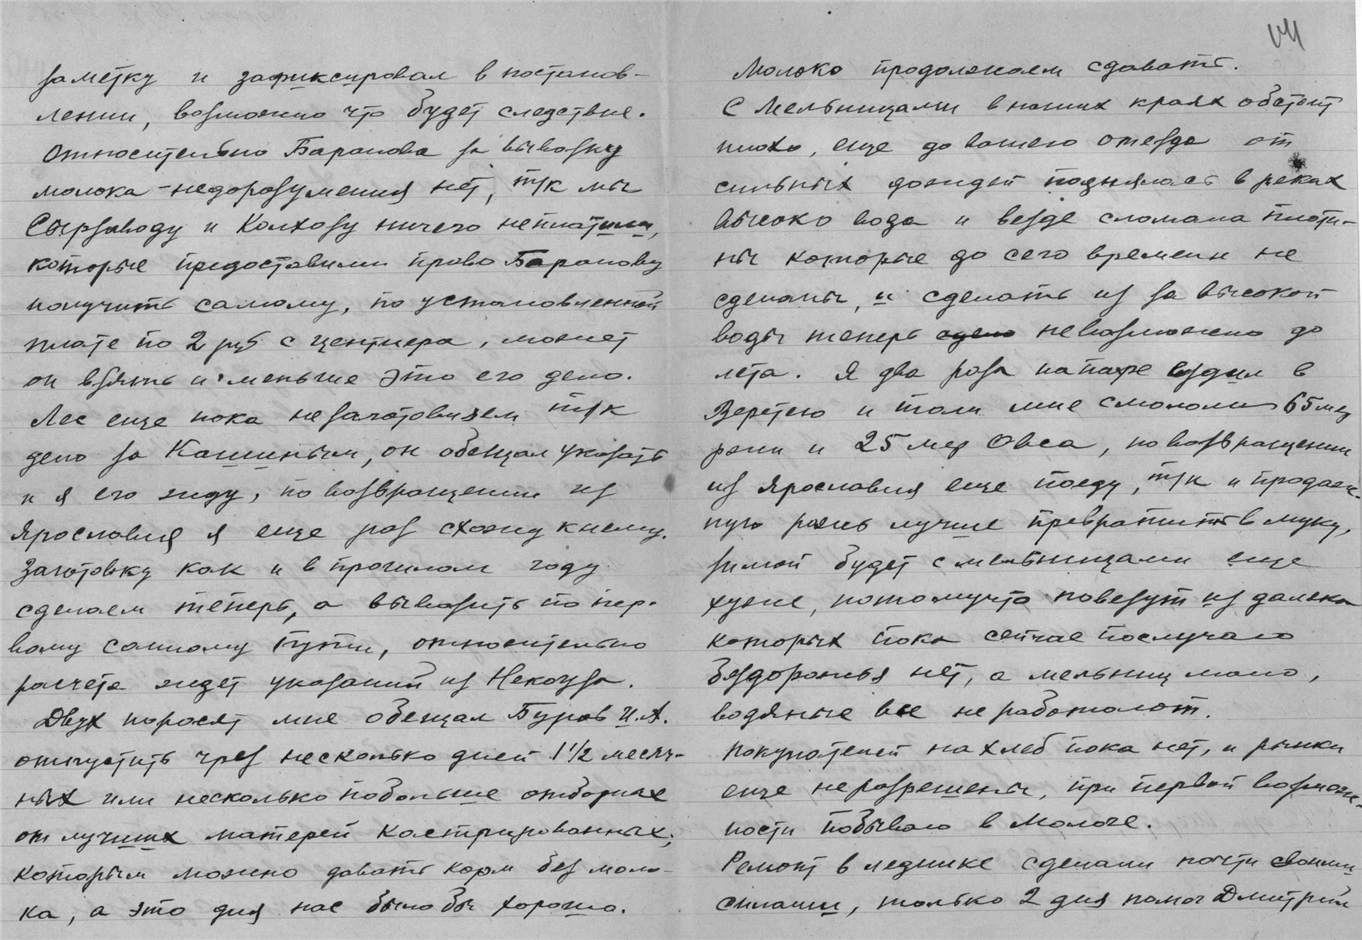 заметку и зафиксировал в постанов-
лении, возможно что будет следствие.
Относительно Баранова за вывозку
молока - недоразумения нет, т/к мы
Сырзаводу и Колхозу ничего неплатили,
которые предоставили право Баранову
получить самому, по установленной
плате по 2 руб с центнера, может
он взять и меньше это его дело.
Лес еще пока незаготовляем т/к
дело за Кашиным, он обещал указать
и я его жду, по возвращении из
Ярославля я еще раз схожу кнему.
Заготовку как и в прошлом году
сделаем теперь, а вывозить по пер-
вому санному пути, относительно
расчета ждет указаний из Некоуза.
Двух поросят мне обещал Буров И.А.
отпустить чрез несколько дней 1 1/2 месяч-
ных или несколько побольше отборных
от лучших матерей кастрированных,
которым можно давать корм без моло-
ка, а это для нас было бы хорошо.
141
Молоко продолжаем сдавать.
С Мельницами в наших краях обстоит
плохо, еще до вашего отезда от
сильных дождей поднялась в реках
высоко вода и везде сломала плоти-
ны которые до сего времени не
сделаны, и сделать из за высокой
воды теперь невозможно до
лета. Я два раза на паре ездил в
Веретею и там мне смололи 65 мер
ржи и 25 мер Овса, по возвращении
из Ярославля еще поеду, т/к и продаж-
ную рожь лучше превратить в муку,
зимой будет с мельницами еще
хуже, потомучто повезут из далека
которых пока сейчас послучаю
бездорожья нет, а мельниц мало,
водяные все не работают.
Покупателей на хлеб пока нет, и рынки
еще неразрешены, при первой возмож-
ности побываю в Мологе.
Ремонт в леднике сделали почти своими
силами, только 2 дня помог Дмитрий